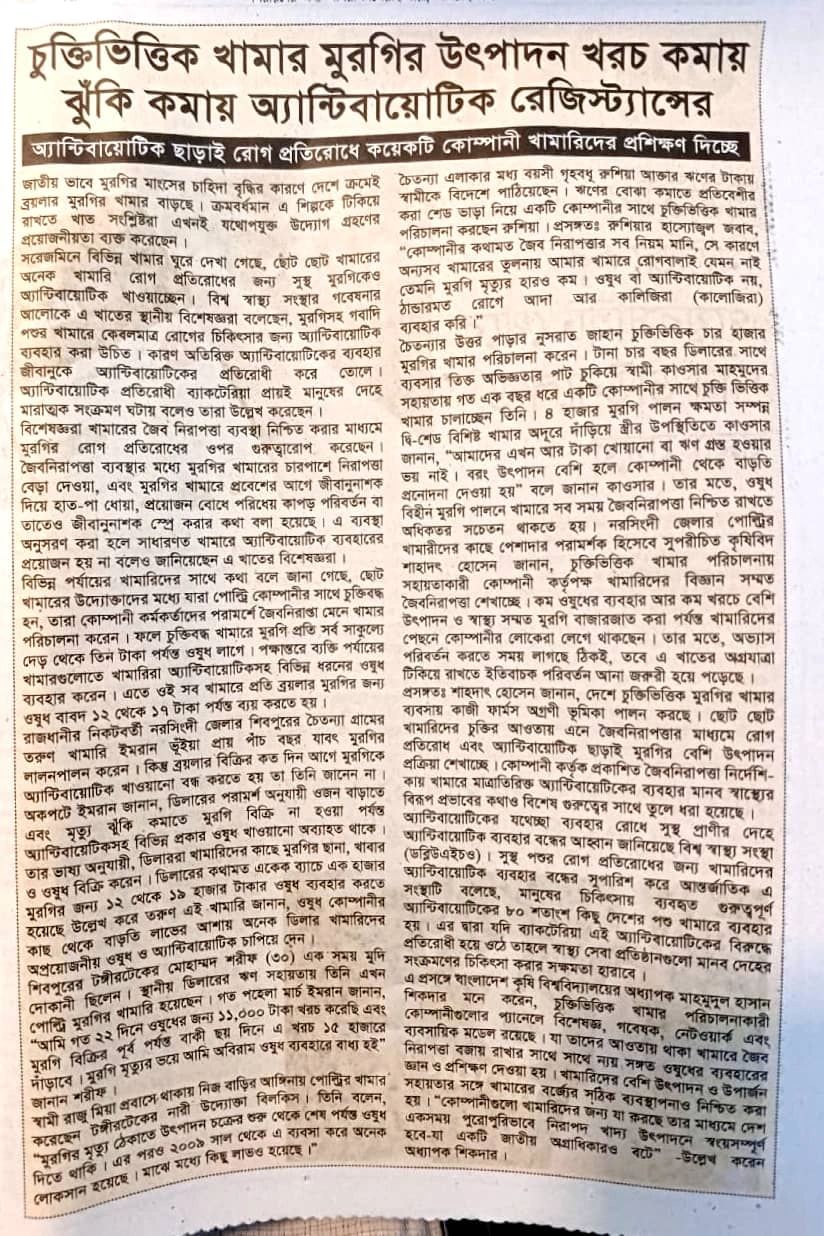 চুক্তিভিত্তিক খামার মুরগির উৎপাদন খরচ কমায়
ঝুঁকি কমায় অ্যান্টিবায়োটিক রেজিস্ট্যান্সের
অ্যান্টিবায়োটিক ছাড়াই রোগ প্রতিরোধে কয়েকটি কোম্পানী খামারিদের প্রশিক্ষণ দিচ্ছে
জাতীয় ভাবে মুরগির মাংসের চাহিদা বৃদ্ধির কারণে দেশে ক্রমেই
ব্রয়লার মুরগির খামার বাড়ছে। ক্রমবর্ধমান এ শিল্পকে টিকিয়ে
রাখতে খাত সংশ্লিষ্টরা এখনই যথোপযুক্ত উদ্যোগ গ্রহণের
প্রয়োজনীয়তা ব্যক্ত করেছেন।
সরেজমিনে বিভিন্ন খামার ঘুরে দেখা গেছে, ছোট ছোট খামারের
অনেক খামারি রোগ প্রতিরোধের জন্য সুস্থ মুরগিকেও
অ্যান্টিবায়োটিক খাওয়াচ্ছেন। বিশ্ব স্বাস্থ্য সংস্থার গবেষনার
আলোকে এ খাতের স্থানীয় বিশেষজ্ঞরা বলেছেন, মুরগিসহ গবাদি
পশুর খামারে কেবলমাত্র রোগের চিকিৎসার জন্য অ্যান্টিবায়োটিক
ব্যবহার করা উচিত। কারণ অতিরিক্ত অ্যান্টিবায়োটিকের ব্যবহার
জীবানুকে অ্যান্টিবায়োটিকের প্রতিরোধী করে তোলে।
অ্যান্টিবায়োটিক প্রতিরোধী ব্যাকটেরিয়া প্রায়ই মানুষের দেহে
মারাত্মক সংক্রমণ ঘটায় বলেও তারা উল্লেখ করেছেন।
বিশেষজ্ঞরা খামারের জৈব নিরাপত্তা ব্যবস্থা নিশ্চিত করার মাধ্যমে
মুরগির রোগ প্রতিরোধের ওপর গুরুত্বারোপ করেছেন।
জৈবনিরাপত্তা ব্যবস্থার মধ্যে মুরগির খামারের চারপাশে নিরাপত্তা
বেড়া দেওয়া, এবং মুরগির খামারে প্রবেশের আগে জীবানুনাশক
দিয়ে হাত-পা ধোয়া, প্রয়োজন বোধে পরিধেয় কাপড় পরিবর্তন বা
তাতেও জীবানুনাশক স্প্রে করার কথা বলা হয়েছে। এ ব্যবস্থা
অনুসরণ করা হলে সাধারণত খামারে অ্যান্টিবায়োটিক ব্যবহারের
প্রয়োজন হয় না বলেও জানিয়েছেন এ খাতের বিশেষজ্ঞরা।
বিভিন্ন পর্যায়ের খামারিদের সাথে কথা বলে জানা গেছে, ছোট
খামারের উদ্যোক্তাদের মধ্যে যারা পোল্ট্রি কোম্পানীর সাথে চুক্তিবদ্ধ
হন, তারা কোম্পানী কর্মকর্তাদের পরামর্শে জৈবনিরাপ্তা মেনে খামার
পরিচালনা করেন। ফলে চুক্তিবদ্ধ খামারে মুরগি প্রতি সর্ব সাকুল্যে
দেড় থেকে তিন টাকা পর্যন্ত ওষুধ লাগে। পক্ষান্তরে ব্যক্তি পর্যায়ের
খামারগুলোতে খামারিরা অ্যান্টিবায়োটিকসহ বিভিন্ন ধরনের ওষুধ
ব্যবহার করেন। এতে ওই সব খামারে প্রতি ব্রয়লার মুরগির জন্য
ওষুধ বাবদ ১২ থেকে ১৭ টাকা পর্যন্ত ব্যয় করতে হয়।
রাজধানীর নিকটবর্তী নরসিংদী জেলার শিবপুরের চৈতন্যা গ্রামের
তরুণ খামারি ইমরান ভূঁইয়া প্রায় পাঁচ বছর যাবৎ মুরগির
লালনপালন করেন। কিন্তু ব্রয়লার বিক্রির কত দিন আগে মুরগিকে
অ্যান্টিবায়োটিক খাওয়ানো বন্ধ করতে হয় তা তিনি জানেন না।
অকপটে ইমরান জানান, ডিলারের পরামর্শ অনুযায়ী ওজন বাড়াতে
এবং মৃত্যু ঝুঁকি কমাতে মুরগি বিক্রি না হওয়া পর্যন্ত
অ্যান্টিবায়োটিকসহ বিভিন্ন প্রকার ওষুধ খাওয়ানো অব্যাহত থাকে।
তার ভাষ্য অনুযায়ী, ডিলাররা খামারিদের কাছে মুরগির ছানা, খাবার
ও ওষুধ বিক্রি করেন। ডিলারের কথামত একেক ব্যাচে এক হাজার
মুরগির জন্য ১২ থেকে ১৯ হাজার টাকার ওষুধ ব্যবহার করতে
হয়েছে উল্লেখ করে তরুণ এই খামারি জানান, ওষুধ কোম্পানীর
কাছ থেকে বাড়তি লাভের আশায় অনেক ডিলার খামারিদের
অপ্রয়োজনীয় ওষুধ ও অ্যান্টিবায়োটিক চাপিয়ে দেন।
শিবপুরের টঙ্গীরটেকের মোহাম্মদ শরীফ (৩০) এক সময় মুদি
দোকানী ছিলেন। স্থানীয় ডিলারের ঋণ সহায়তায় তিনি এখন
পোল্ট্রি মুরগির খামারি হয়েছেন। গত পহেলা মার্চ ইমরান জানান,
“আমি গত ২২ দিনে ওষুধের জন্য ১১,০০০ টাকা খরচ করেছি এবং
মুরগি বিক্রির পূর্ব পর্যন্ত বাকী ছয় দিনে এ খরচ ১৫ হাজারে
দাঁড়াবে। মুরগি মৃত্যুর ভয়ে আমি অবিরাম ওষুধ ব্যবহারে বাধ্য হই”
জানান শরীফ।
স্বামী রাজু মিয়া প্রবাসে থাকায় নিজ বাড়ির আঙ্গিনায় পোল্ট্রির খামার
করেছেন টঙ্গীরটেকের নারী উদ্যোক্তা বিলকিস। তিনি বলেন,
“মুরগির মৃত্যু ঠেকাতে উৎপাদন চক্রের শুরু থেকে শেষ পর্যন্ত ওষুধ
দিতে থাকি। এর পরও ২০০৯ সাল থেকে এ ব্যবসা করে অনেক
লোকসান হয়েছে। মাঝে মধ্যে কিছু লাভও হয়েছে।”
চৈতন্যা এলাকার মধ্য বয়সী গৃহবধূ রুশিয়া আক্তার ঋণের টাকায়
স্বামীকে বিদেশে পাঠিয়েছেন। ঋণের বোঝা কমাতে প্রতিবেশীর
করা শেড ভাড়া নিয়ে একটি কোম্পানীর সাথে চুক্তিভিত্তিক খামার
পরিচালনা করছেন রুশিয়া। প্রসঙ্গতঃ রুশিয়ার হাস্যোজুল জবাব,
“কোম্পানীর কথামত জৈব নিরাপত্তার সব নিয়ম মানি, সে কারণে
অন্যসব খামারের তুলনায় আমার খামারে রোগবালাই যেমন নাই
তেমনি মুরগি মৃত্যুর হারও কম। ওষুধ বা অ্যান্টিবায়োটিক নয়,
ঠান্ডারমত রোগে আদা আর কালিজিরা (কালোজিরা)
ব্যবহার করি।”
চৈতন্যার উত্তর পাড়ার নুসরাত জাহান চুক্তিভিত্তিক চার হাজার
মুরগির খামার পরিচালনা করেন। টানা চার বছর ডিলারের সাথে
ব্যবসার তিক্ত অভিজ্ঞতার পাট চুকিয়ে স্বামী কাওসার মাহমুদের
সহায়তায় গত এক বছর ধরে একটি কোম্পানীর সাথে চুক্তি ভিত্তিক
খামার চালাচ্ছেন তিনি। ৪ হাজার মুরগি পালন ক্ষমতা সম্পন্ন
দ্বি-শেড বিশিষ্ট খামার অদূরে দাঁড়িয়ে স্ত্রীর উপস্থিতিতে কাওসার
জানান, “আমাদের এখন আর টাকা খোয়ানো বা ঋণ গ্রস্ত হওয়ার
ভয় নাই। বরং উৎপাদন বেশি হলে কোম্পানী থেকে বাড়তি
প্রনোদনা দেওয়া হয়” বলে জানান কাওসার। তার মতে, ওষুধ
বিহীন মুরগি পালনে খামারে সব সময় জৈবনিরাপত্তা নিশ্চিত রাখতে
অধিকতর সচেতন থাকতে হয়। নরসিংদী জেলার পোল্ট্রির
খামারীদের কাছে পেশাদার পরামর্শক হিসেবে সুপরীচিত কৃষিবিদ
শাহাদৎ হোসেন জানান, চুক্তিভিত্তিক খামার পরিচালনায়
সহায়তাকারী কোম্পানী কর্তৃপক্ষ খামারিদের বিজ্ঞান সম্মত
জৈবনিরাপত্তা শেখাচ্ছে। কম ওষুধের ব্যবহার আর কম খরচে বেশি
উৎপাদন ও স্বাস্থ্য সম্মত মুরগি বাজারজাত করা পর্যন্ত খামারিদের
পেছনে কোম্পানীর লোকেরা লেগে থাকছেন। তার মতে, অভ্যাস
পরিবর্তন করতে সময় লাগছে ঠিকই, তবে এ খাতের অগ্রযাত্রা
টিকিয়ে রাখতে ইতিবাচক পরিবর্তন আনা জরুরী হয়ে পড়েছে।
প্রসঙ্গতঃ শাহদাৎ হোসেন জানান, দেশে চুক্তিভিত্তিক মুরগির খামার
ব্যবসায় কাজী ফার্মস অগ্রণী ভূমিকা পালন করছে। ছোট ছোট
খামারিদের চুক্তির আওতায় এনে জৈবনিরাপত্তার মাধ্যমে রোগ
প্রতিরোধ এবং অ্যান্টিবায়োটিক ছাড়াই মুরগির বেশি উৎপাদন
প্রক্রিয়া শেখাচ্ছে। কোম্পানী কর্তৃক প্রকাশিত জৈবনিরাপত্তা নির্দেশি-
কায় খামারে মাত্রাতিরিক্ত অ্যান্টিবায়োটিকের ব্যবহার মানব স্বাস্থ্যের
বিরূপ প্রভাবের কথাও বিশেষ গুরুত্বের সাথে তুলে ধরা হয়েছে।
অ্যান্টিবায়োটিকের যথেচ্ছা ব্যবহার রোধে সুস্থ প্রাণীর দেহে
অ্যান্টিবায়োটিক ব্যবহার বন্ধের আহ্বান জানিয়েছে বিশ্ব স্বাস্থ্য সংস্থা
(ডব্লিউএইচও)। সুস্থ পশুর রোগ প্রতিরোধের জন্য খামারিদের
অ্যান্টিবায়োটিক ব্যবহার বন্ধের সুপারিশ করে আন্তর্জাতিক এ
সংস্থাটি বলেছে, মানুষের চিকিৎসায় ব্যবহৃত গুরুত্বপূর্ণ
অ্যান্টিবায়োটিকের ৮০ শতাংশ কিছু দেশের পশু খামারে ব্যবহার
হয়। এর দ্বারা যদি ব্যাকটেরিয়া এই অ্যান্টিবায়োটিকের বিরুদ্ধে
প্রতিরোধী হয়ে ওঠে তাহলে স্বাস্থ্য সেবা প্রতিষ্ঠানগুলো মানব দেহের
সংক্রমণের চিকিত্সা করার সক্ষমতা হারাবে।
এ প্রসঙ্গে বাংলাদেশ কৃষি বিশ্ববিদ্যালয়ের অধ্যাপক মাহমুদুল হাসান
শিকদার মনে করেন, চুক্তিভিত্তিক খামার পরিচালনাকারী
কোম্পানীগুলোর প্যানেলে বিশেষজ্ঞ, গবেষক, নেটওয়ার্ক এবং
ব্যবসায়িক মডেল রয়েছে। যা তাদের আওতায় থাকা খামারে জৈব
নিরাপত্তা বজায় রাখার সাথে সাথে ন্যয় সঙ্গত ওষুধের ব্যবহারের
জ্ঞান ও প্রশিক্ষণ দেওয়া হয়। খামারিদের বেশি উৎপাদন ও উপার্জন
সহায়তার সঙ্গে খামারের বর্জ্যের সঠিক ব্যবস্থাপনাও নিশ্চিত করা
হয়। “কোম্পানীগুলো খামারিদের জন্য যা করছে তার মাধ্যমে দেশ
একসময় পুরোপুরিভাবে নিরাপদ খাদ্য উৎপাদনে স্বয়ংসম্পূর্ণ
হবে-যা একটি জাতীয় অগ্রাধিকারও বটে” -উল্লেখ করেন
অধ্যাপক শিকদার।